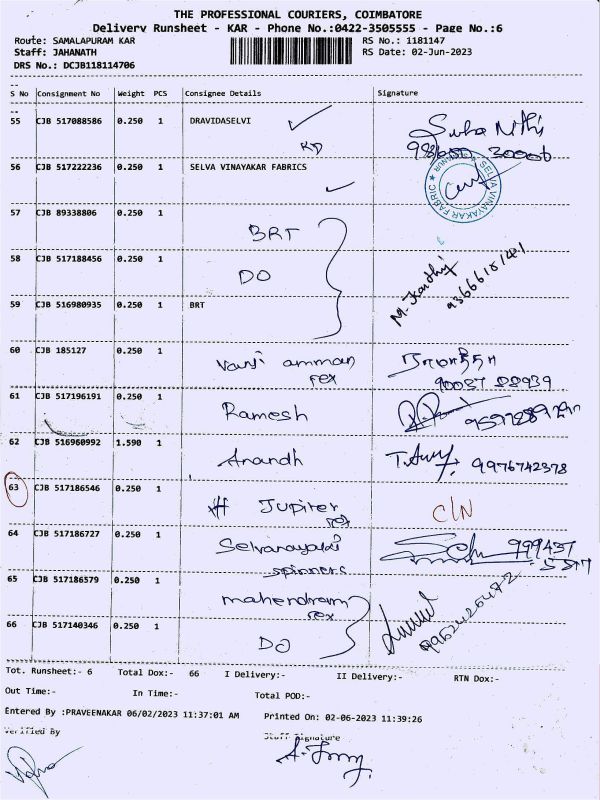 THE PROFESSIONAL COURIERS, COIMBATORE
Delivery Runsheet - KAR - Phone No.:0422-3505555 - Page No.:6
Route: SAMALAPURAM KAR
RS No.: 1181147
Staff: JAHANATH
RS Date: 02-Jun-2023
DRS No.: DCJB118114706
S No Consignment No Weight PCS Consignee Details Signature
55 CJB 517088586 0.250 1 DRAVIDASELVI
56 CJB 517222236 0.250 1 SELVA VINAYAKAR FABRICS
SELVA VINAYAKAR FABRIC
57 CJB 89338806 0.250 1 BRT
58 CJB 517188456 0.250 1 DO
M. Karthi 9366618141
59 CJB 516980935 0.250 1 BRT
60 CJB 185127 0.250 1 Vanji amman
Tex
90037 88939
61 CJB 517196191 0.250 1 Ramesh
62 CJB 516960992 1.590 1 Anandh 9976742378
63 CJB 517186546 0.250 1 # Jupiter C/N
Tex
64 CJB 517186727 0.250 1 Selvanayaki 999437
spinners
65 CJB 517186579 0.250 1 Mahendram
Tex
66 CJB 517140346 0.250 1 DO
Tot. Runsheet:- 6 Total Dox:- 66 I Delivery:- II Delivery:- RTN Dox:-
Out Time:- In Time:- Total POD:-
Entered By :PRAVEENAKAR 06/02/2023 11:37:01 AM Printed On: 02-06-2023 11:39:26
Verified By Staff Signature